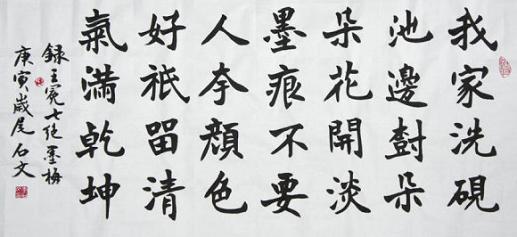 我家洗硯
池邊樹朵
朵花開淡
墨痕不要
人夸顏色
好祇留清
氣滿乾坤
録王冕七絕墨梅
庚寅歲尾石文